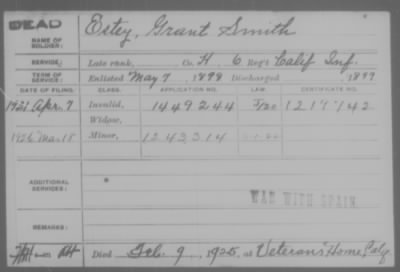 DEAD
NAME OF SOLDIER: Estey, Grant Smith
SERVICE: Late rank, Co. H, 6 Reg't Calif Inf.
TERM OF SERVICE: Enlisted May 7, 1898 Discharged , 1899
DATE OF FILING. CLASS. APPLICATION NO. LAW. CERTIFICATE NO.
1921 Apr. 7 Invalid, 1449244
Widow,
1926 Mar 18 Minor, 1243314
ADDITIONAL SERVICES:
WAR WITH SPAIN
REMARKS:
Died Feb. 9, 1925, at Veterans Home, Calif